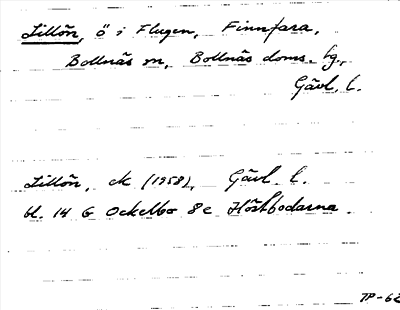 Lillön, ö i Flugen, Finnfara,
Bollnäs sn, Bollnäs doms. hg.,
Gävl. l.
Lillön, ek (1958), Gävl. l.
bl. 14 G Ockelbo 8e Höstbodarna.
TP-62